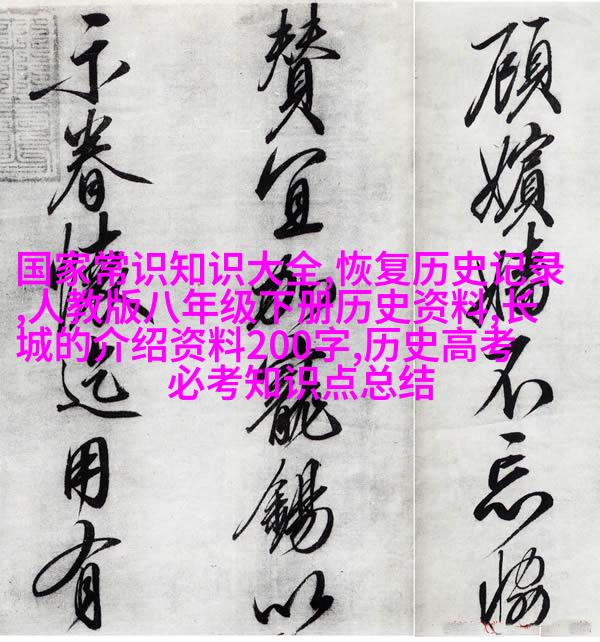 顧嬪嬙不忘恊
贊宜寵錫以
示眷懷迄用有
国家常识知识大全,恢复历史记录
,人教版八年级下册历史资料,长
城的介绍资料200字,历史高考
必考知识点总结